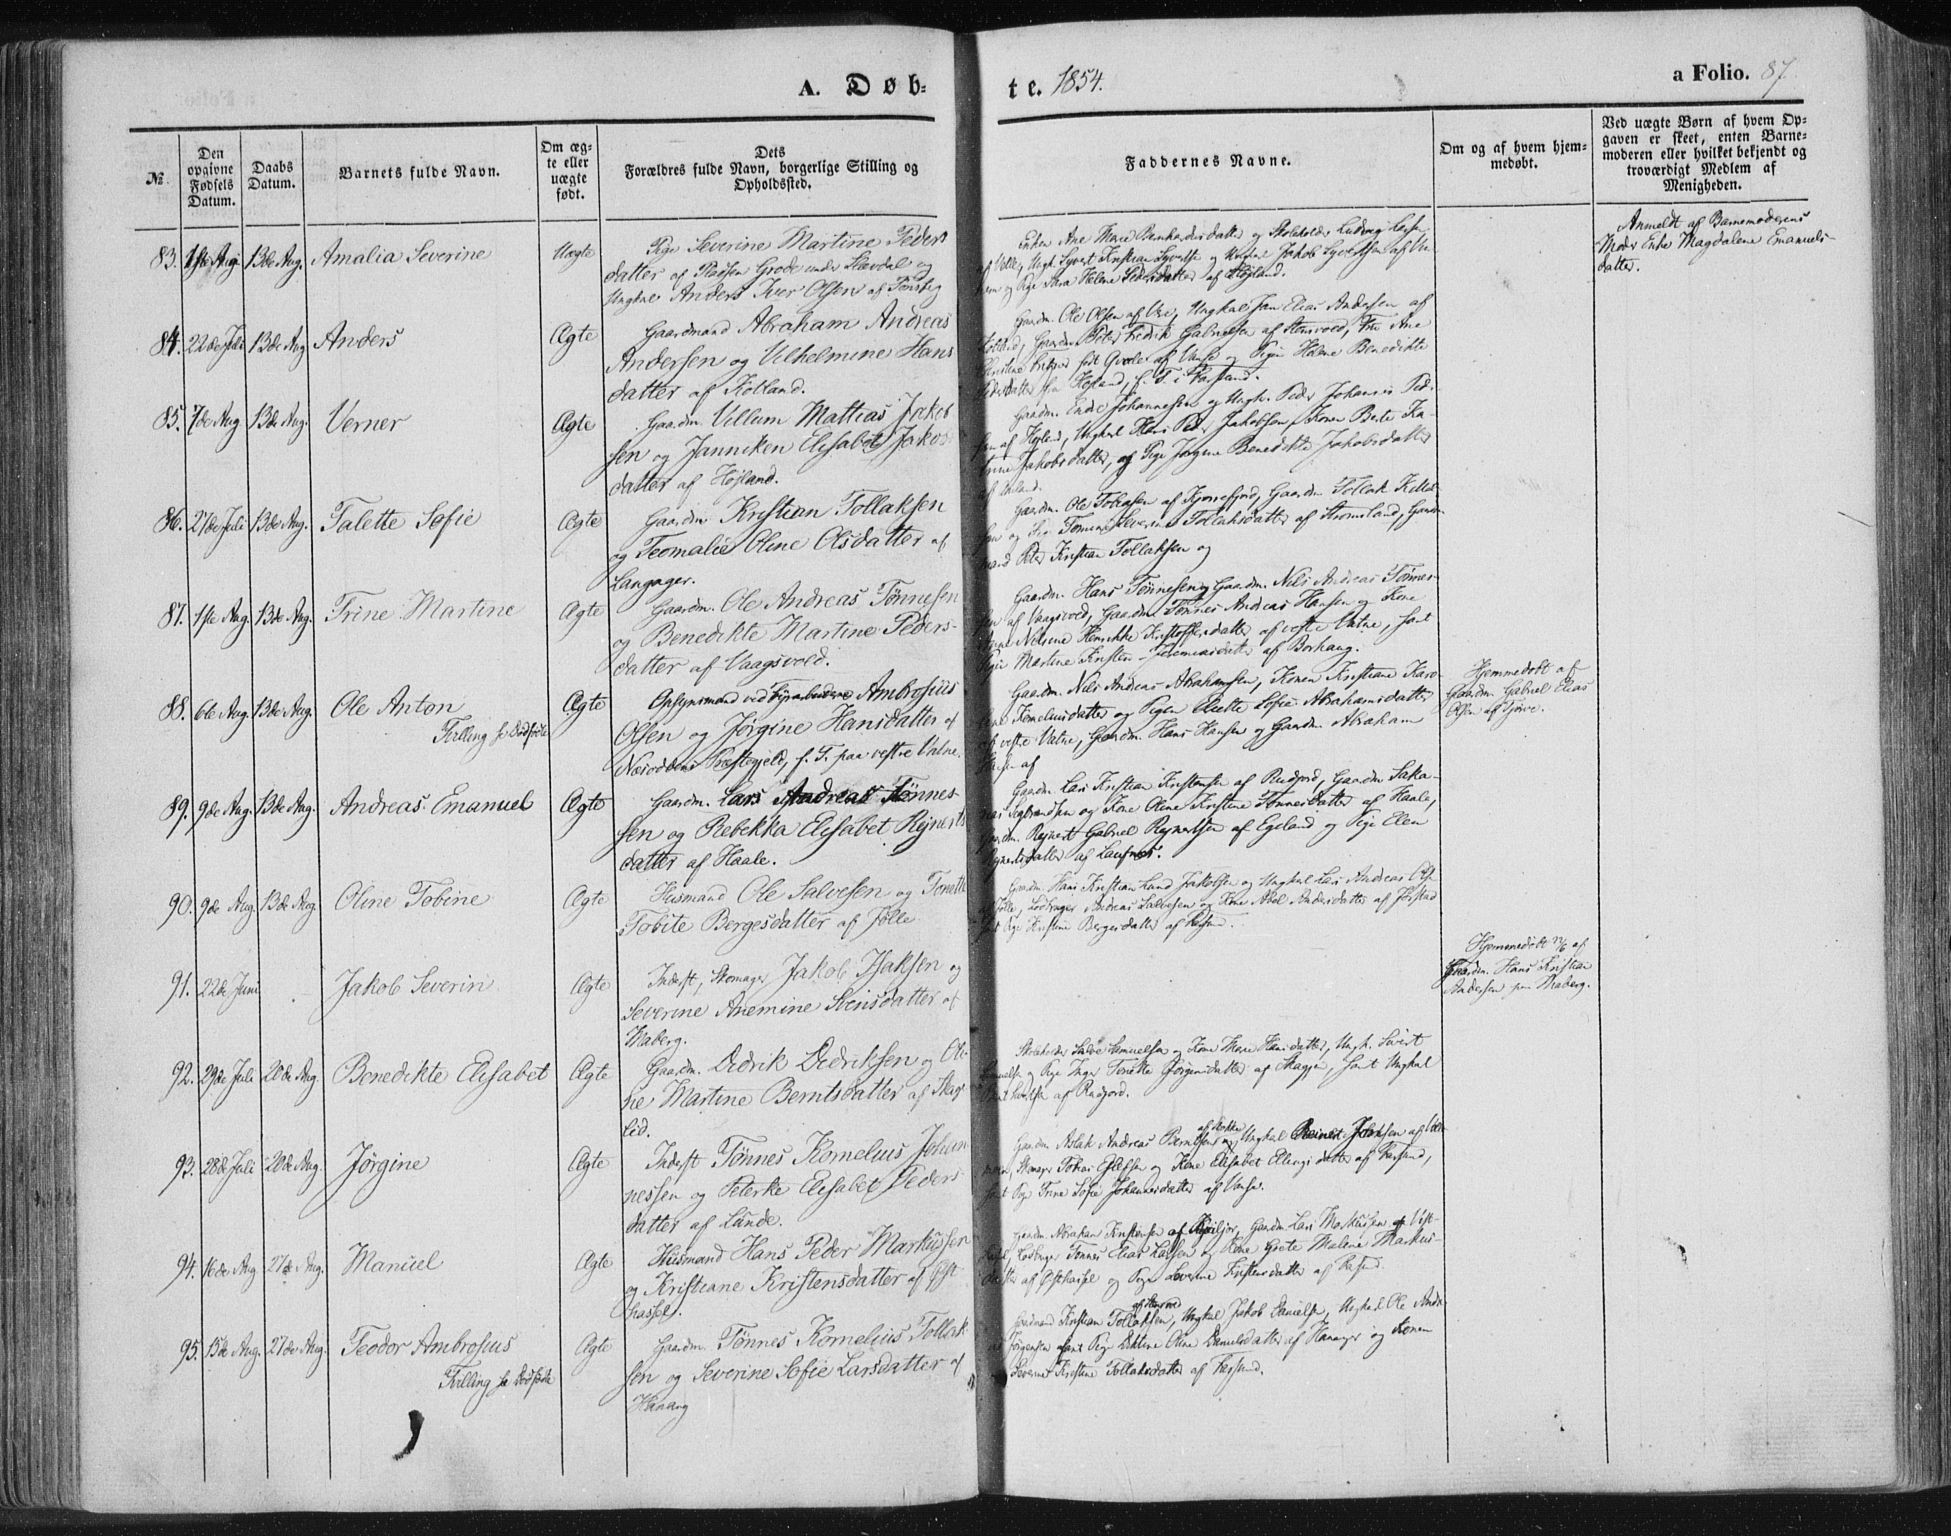 A. Døb=
te. 1854.
a Folio. 87.
№
Den opgivne Fødsels Datum.
Daabs Datum.
Barnets fulde Navn.
Om æg-te eller uægte født.
Dets Forældres fulde Navn, borgerlige Stilling og Opholdssted.
Faddernes Navne.
Om og af hvem hjem-medøbt.
Ved uægte Børn af hvem Op-gaven er skeet, enten Barne-moderen eller hvilket bekjendt og troværdigt Medlem af Menigheden.
83. 1ste Aug. 13de Aug. Amalia Severine Uægte Pige Severine Martine Peders
datter af Pladsen Grode under Slevdal og
Ungkarl Anders Iver Olsen af Tønsberg
Enken Ane Marie Bernhardsdatter og Skoleholder Ludvig
Ungk. Syvert Kristian Syvertsen og Ungkarl Jakob Syvertsen af
og Pige Sara Helene Pedersdatter af Højland.
Anmeldt af Barnemoderens
Moder Enke Magdalena Emanuels-
datter.
84. 22de Juli 13de Aug. Anders Ægte Gaardmand Abraham Andreas
Andersen og Vilhelmine Hans
datter af Jotland.
Gaardm. Ole Olsen af Ore, Ungkal Jan Elias Andersen af
Jotland, Gaardm. Peter Fredrik Gabrielsen af Stensvold, Fru Ane
født Grode af Vanse og Pigen Helene Benedikte
Pedersdatter fra Højland, f. T. i Farsund.
85. 7de Aug. 13de Aug. Verner Ægte Gaardm. Villum Mattias Jakob
sen og Janniken Elisabet Jakobs
datter af Højland.
Gaardm. Endre Johannesen og Ungk. Peder Johannes Ped-
sen af Højland, Ungkal Hans Peder Jakobsen, Konen Berte Ka-
trine Jakobsdatter, og Pige Jørgine Benedikte Jakobsdatter
86. 27de Juli 13de Aug. Talette Sofie Ægte Gaardm Kristian Tollaksen
og Teomalie Oline Olsdatter af
Langager.
Gaardm. Ole Tobiasen af Kjørrefjord, Gaardm. Tollak Ketel-
sen og Pige Tomine Severine Tollaksdatter af Stromsland, Gaard-
mand Peter Kristian Tollaksen og
87. 1ste Aug. 13de Aug. Trine Martine Ægte Gaardm. Ole Andreas Tønnesen
og Benedikte Martine Peders-
datter af Vaagsvold.
Gaardm. Hans Tønnesen og Gaardm. Nils Andreas Tønnes-
sen af Vaagsvold, Gaardm. Tønnes Andreas Hansen og Kone
Nilsine Henrikke Kristoffersdatter af vestre Vatne, samt
Pige Martine Kristine Jeremiasdatter af Borhaug.
88. 6te Aug. 13de Aug. Ole Anton Ægte Opsynsmand ved Fyrarbeidere Ambrosius
Tvilling se Dødfødte
Olsen og Jørgine Hansdatter af
Næsoddens Præstegjeld, f. T. paa vestre Vatne.
Gaardm. Nils Andreas Abrahamsen, Konen Kristiane Karo-
line Korneliusdatter og Pigen Eliette Sofie Abrahamsdatter
af vestre Vatne, Gaardm. Hans Hansen og Gaardm Abraham
Hansen af
Hjemmedøbt af
Gaardm. Gabriel Elias
Olsen af Tjørve.
89. 9de Aug. 13de Aug. Andreas Emanuel Ægte Gaardm. Lars Andreas Tønnes
sen og Rebekka Elisabet Rejnerts
datter af Haale.
Gaardm. Lars Kristian Kristensen af Rudjord, Gaardm Saka-
rias Sigbrandsen og Kone Oline Kristine Tønnesdatter af Haale,
Gaardm. Rejnert Gabriel Rejnertsen af Egeland og Pige Elen
Rejnertsdatter af
90. 9de Aug. 13de Aug. Oline Tobine Ægte Husmand Ole Salvesen og Tonette
Tobite Bergesdatter af Jølle
Gaardm. Hans Kristian Lund Jakobsen og Ungkal Lars Andreas Ols.
af Jølle, Lodbruger Andreas Salvesen og Kone Abel Andersdatter af
Pige Kristine Bergesdatter af
91. 22de Juni Jakob Severin Ægte Inderst, Skomager Jakob Isaksen og
Severine Anemine Svensdatter af
Maberg.
Hjemmedøbt af
Gaardm. Hans Kristian
Andersen paa Maberg.
92. 29de Juli 20de Aug. Benedikte Elisabet Ægte Gaardm. Didrik Didriksen og Oli-
ne Martine Berntsdatter af Skej-
lid.
Skoleholder Salve Samuelsen og Kone Marie Hansdatter, Ungk. Sivert
og Pige Inger Tonette Jørgensdatter af Skagje, samt Ungkal
af Rudjord.
93. 28de Juli 20de Aug. Jørgine Ægte Inderst Tønnes Kornelius Johan
nessen og Peterke Elisabet Peders
datter af Lunde.
Gaardm Aslak Andreas Berntsen og Ungkal
Skomager Tobias Olsen og Kone Elisabet Ellingsdatter af Farsund,
samt Pige Trine Sofie Johannesdatter af Vanse.
94. 16de Aug. 27de Aug. Manuel Ægte Husmand Hans Peder Markussen
og Kristiane Kristensdatter af Øst
hassel.
Gaardm Abraham Kristensen af Gaardm Lars Markussen af Vest-
hassel, Lodbruger Tønnes Elias Larsen og Kone Grete Malene Markus-
datter af Østhassel og Pige Severine Kristensdatter af
95. 15de Aug. 27de Aug. Teodor Ambrosius Ægte Gaardm. Tønnes Kornelius Tollak-
Tvilling se Dødfødte
sen og Severine Sofie Larsdatter af
Hanang
Gaardmand Kristian Tollaksen, Ungkal Jakob Danielsen, Ungkal Ole Andr
Jørgensen samt Pige Oline Danielsdatter af Hananger og Konen
Severine Kristine Tollaksdatter af Farsund.